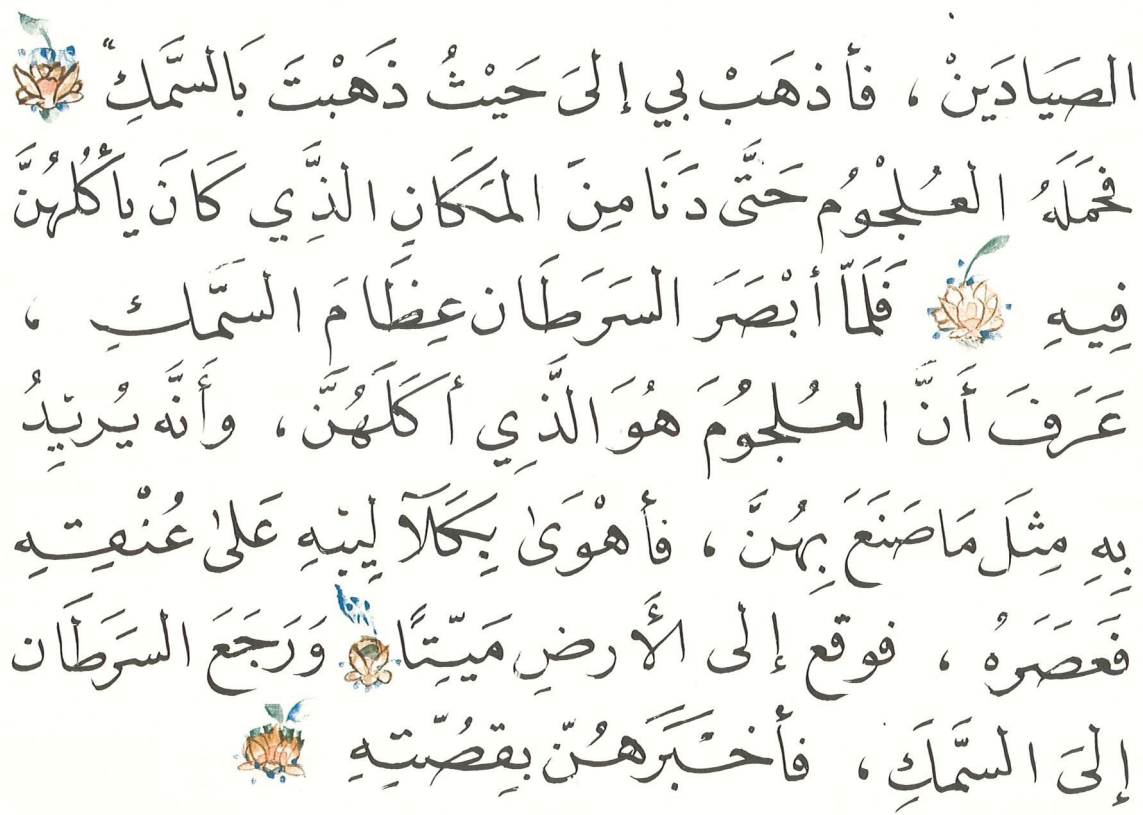 الصَيادَينْ ، فأذهَبْ بي إلىَ حَيْثُ ذَهَبْتَ بَالسَّمَكِ"
فحَمَلَهُ العُلْجومُ حَتَّى دَنَا مِنَ المَكَانِ الذَّي كَانَ يأكُلُهُنَّ
فِيهِ فَلَمَّا أبْصَرَ السَرَطَان عِظَامَ السَّمكِ ،
عَرَفَ أَنَّ العُلجُومَ هُوَ الَّذِي أكَلَهُنَّ ، وأَنَّه يُريْدُ
بِهِ مِثلَ مَا صَنَعَ بِهُنَّ ، فأهْوَىٰ بِكَلَآلِيْبِهِ عَلىٰ عُنْقِهِ
فَعَصَرهُ ، فوقع إلى الأَرضِ مَيّتِاً وَرَجَعَ السَرَطَان
إلىَ السَّمَكَِ ، فأخْبَرَهُنّ بقِصُتّهِِ